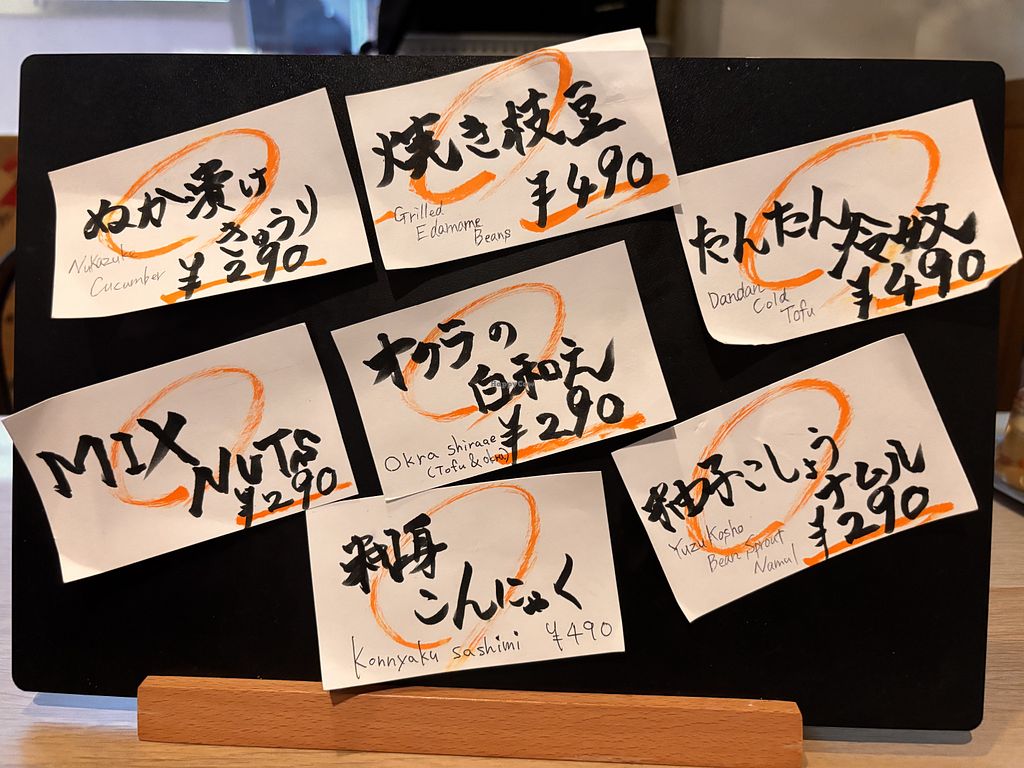 ぬか漬け
きゅうり
Nukazuke
Cucumber
¥290
焼き枝豆
¥490
Grilled
Edamame
Beans
たんたん冷奴
¥490
Dandan
Cold
Tofu
MIX
NUTS
¥290
オクラの
白和え
¥290
Okra shiraae
(Tofu & okra)
HappyCow
柚子こしょう
ナムル
¥290
Yuzu Kosho
Bean Sprout
Namul
刺身
こんにゃく
Konnyaku sashimi ¥490